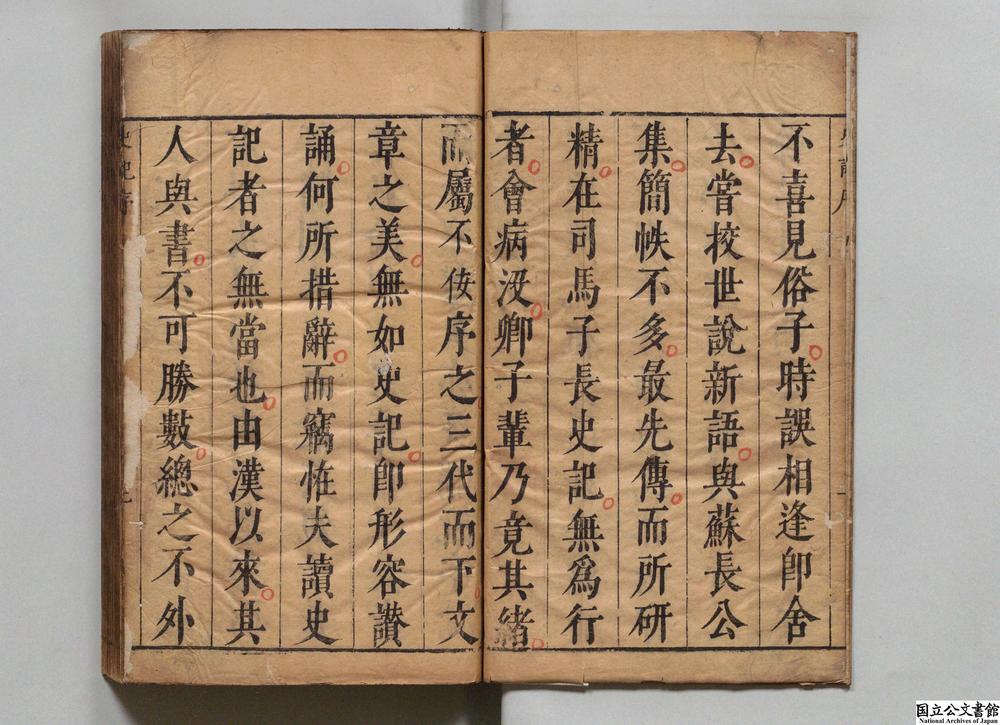 不喜見俗子時誤相逢卽舍
去嘗挍世說新語與蘇長公
集簡帙不多最先傳而所硏
精在司馬子長史記無爲行
者會病沒卿子輩乃竟其緒
而屬不佞序之三代而下文
章之美無如史記卽形容讃
誦何所措辭而竊恠夫讀史
記者之無當也由漢以來其
人與書不可勝數總之不外
国立公文書館
National Archives of Japan